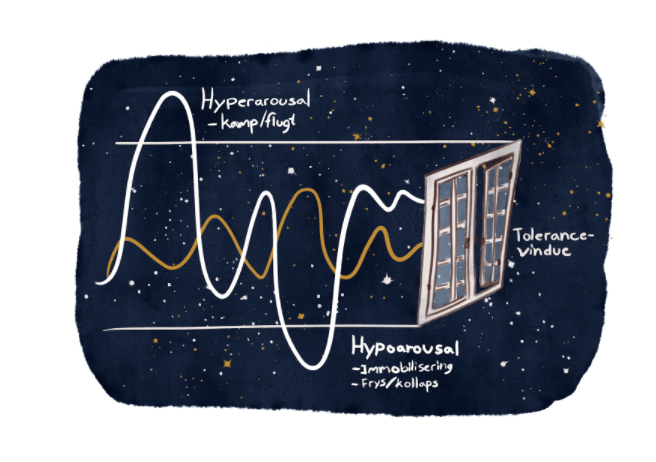 Hyperarousal
- kamp/flugt
Tolerance-
vindue
Hypoarousal
- Immobilisering
- Frys/kollaps